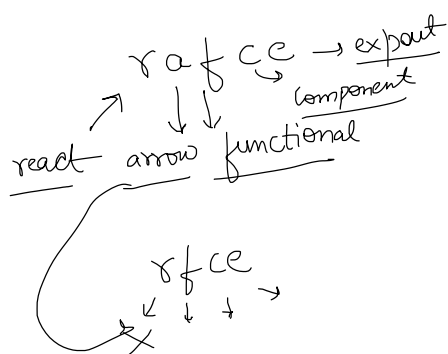 rafce → export
component
react arrow functional
rfce